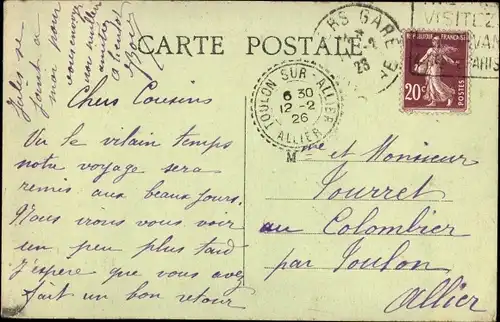 CARTE POSTALE
RS GARE
26
VISITEZ
VAN
PARIS
RÉPUBLIQUE FRANÇAISE
20c
POSTES
TOULON-SUR-ALLIER
6 30
12-2
26
ALLIER
Jules se
joint à
moi pour
vous envoyer
nos meilleures
amitiés
à bientôt
Chers Cousins
Vu le vilain temps
notre voyage sera
remis aux beaux jours.
Nous irons vous voir
un peu plus tard
J'espère que vous avez
fait un bon retour
Mme et Monsieur
Tourret
au Colombier
par Toulon
Allier